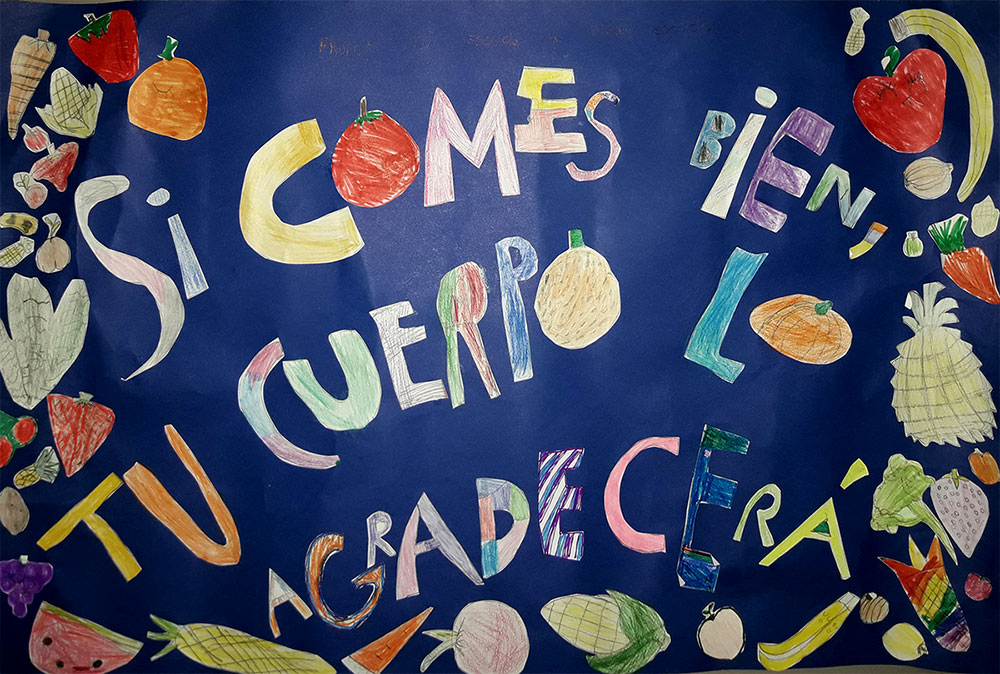 SI COMES BIEN,
TU CUERPO LO
AGRADECERÁ